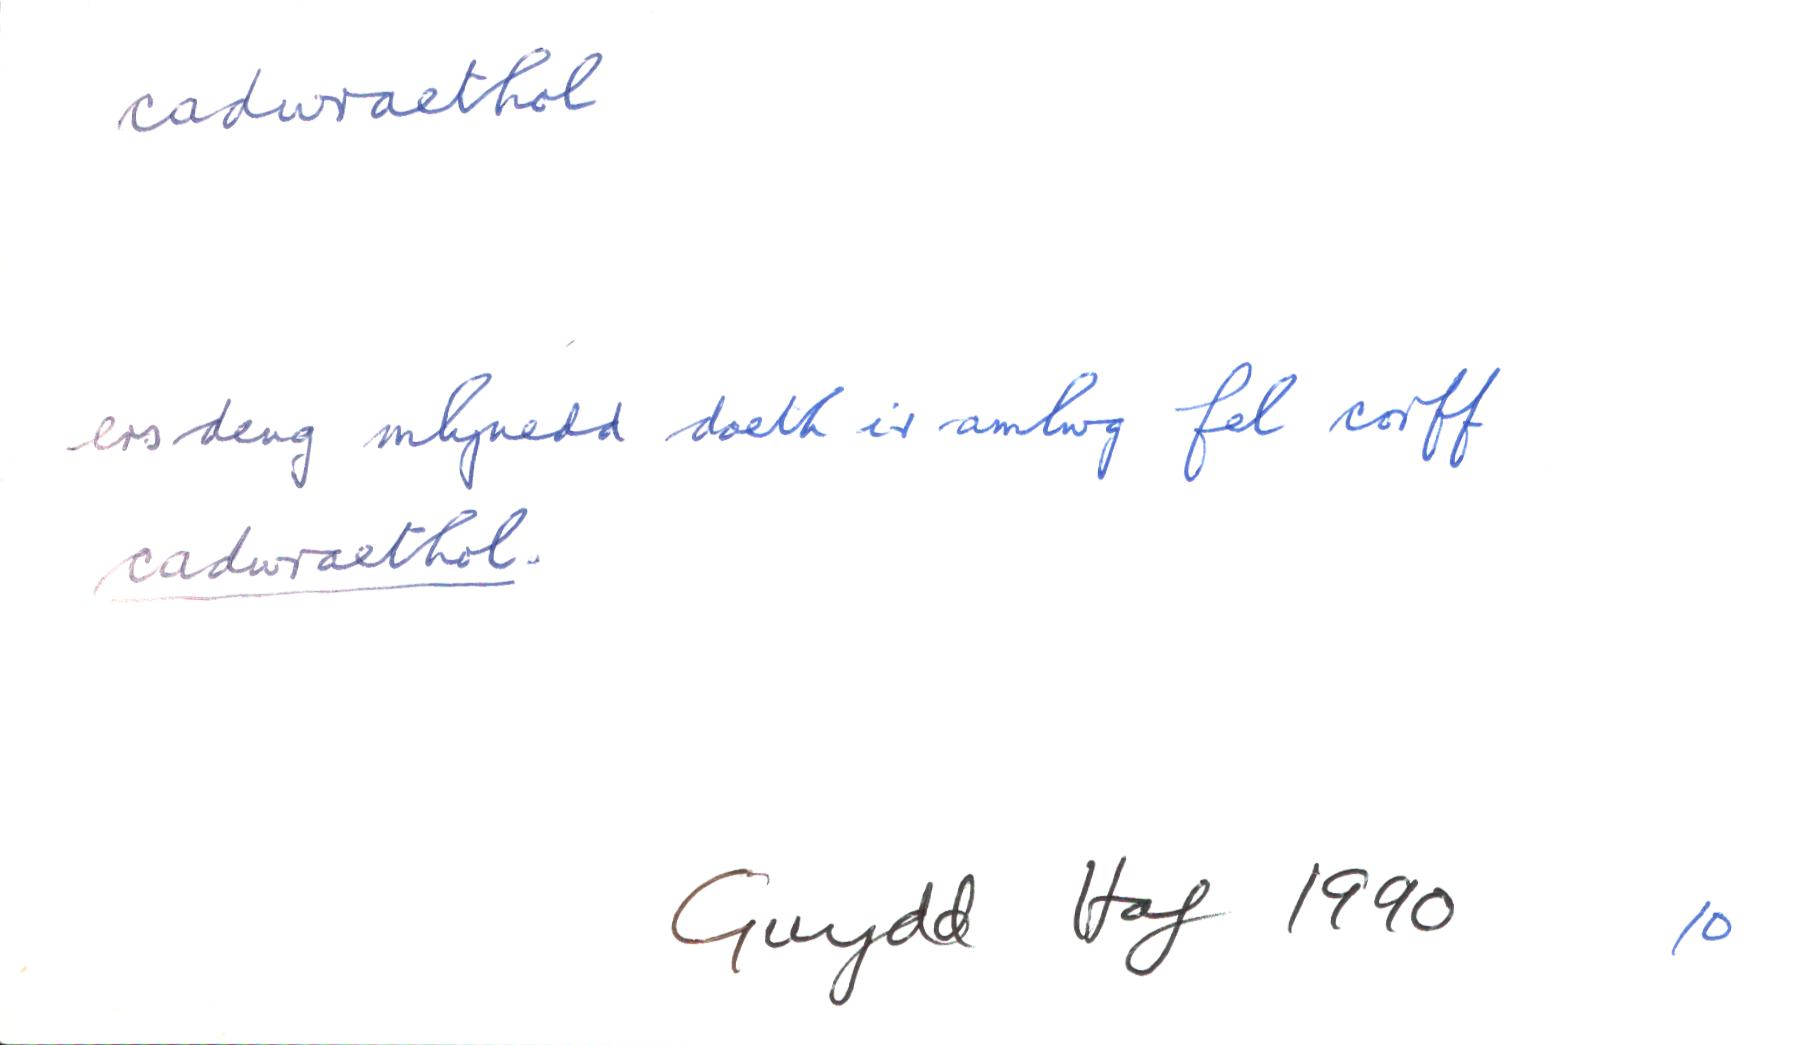 cadwraethol
ers deng mlynedd daeth i'r amlwg fel corff
cadwraethol.
Gwydd Haf 1990 10